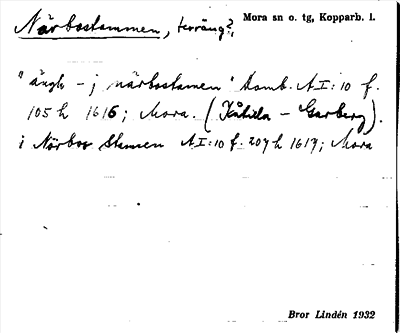 Närbostammen, terräng?, Mora sn o. tg, Kopparb. l.
"ängh - j närbostamen" Domb. A I:10 f.
105 h 1616; Mora. (Kåtilla - Garberg).
i Närboo Stamen A I:10 f. 207 h 1617; Mora
Bror Lindén 1932